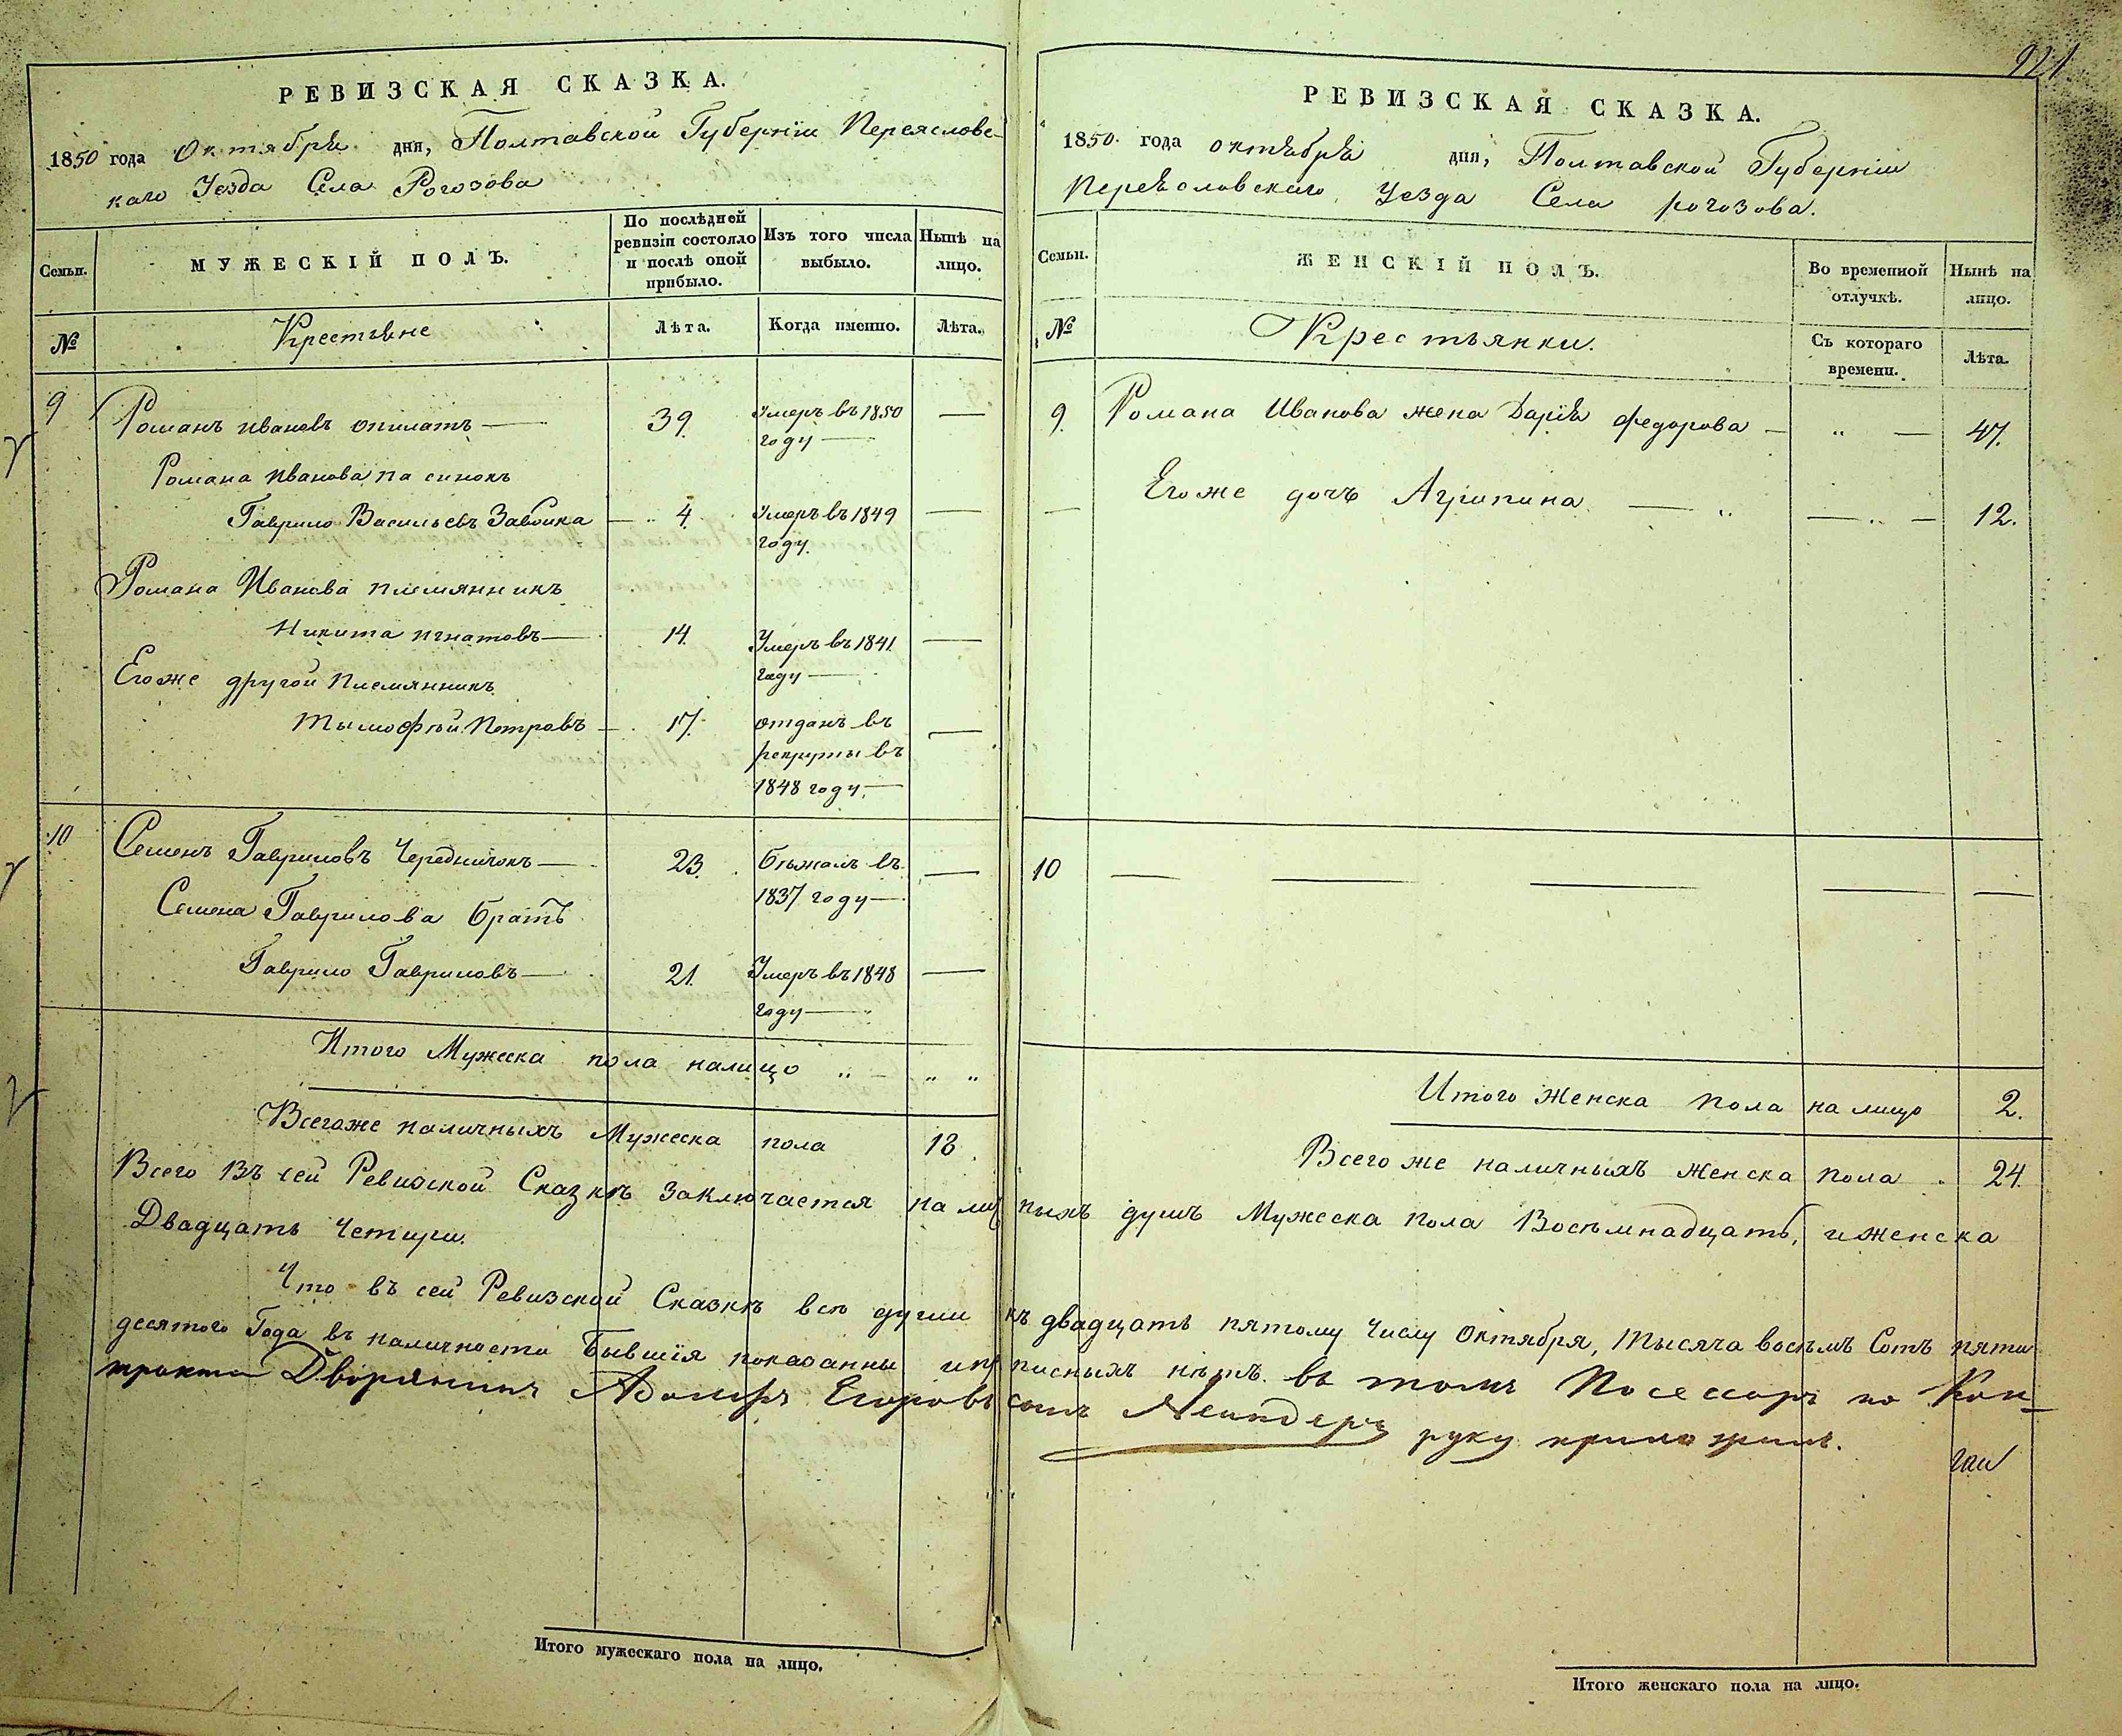 921
РЕВИЗСКАЯ СКАЗКА.
1850 года Октября дня, Полтавской Губерніи Переяславс-
каго Уезда Села Рогозова
Семьи.
МУЖЕСКІЙ ПОЛЪ.
По послѣдней
ревизіи состояло
и послѣ оной
прибыло.
Изъ того числа
выбыло.
Нынѣ на
лицо.
№
Крестьяне
Лѣта.
Когда именно.
Лѣта.
9 Романъ Ивановъ Опилатъ — 39. Умеръ въ 1850 —
году —
Романа Иванова па синокъ
Гаврило Васильевъ Забоика — 4. Умеръ въ 1849 —
году.
Романа Иванова племянникъ
Никита Игнатовъ — 14. Умеръ въ 1841 —
году —
Егоже другой племянникъ
Тымофѣй Петровъ — 17. отданъ въ —
рекруты въ
1848 году. —
10 Семенъ Гавриловъ Чередничокъ — 23. бѣжалъ въ —
1837 году —
Семена Гаврилова братъ
Гаврило Гавриловъ — 21. Умеръ въ 1848 —
году —
Итого Мужеска пола налицо „ — „ „
Всегоже наличныхъ Мужеска пола 18.
РЕВИЗСКАЯ СКАЗКА.
1850. года октября дня, Полтавской Губерніи
Переяславскаго Уезда Села рогозова.
Семьи.
ЖЕНСКІЙ ПОЛЪ.
Во временной
отлучкѣ.
Нынѣ на
лицо.
№
Крестьянки.
Съ котораго
времени.
Лѣта.
9. Романа Иванова жена Дарія федорова — „ — 47.
— Егоже дочъ Агрипина — „ — „ — 12.
10 — — — — —
Итого Женска пола на лицо 2.
Всего же наличныхъ женска пола . 24.
Всего Въ сей Ревизской Сказкѣ заключается на лич ныхъ душъ Мужеска пола Восѣмнадцать, и женска
Двадцать Четири.
Что въ сей Ревизской Сказкѣ всѣ души къ двадцать пятому Числу Октября, тысяча восѣмъ Сотъ пяти
десятого Года въ наличности Бывшія показанны и пр писныхъ нѣтъ. въ томъ Посессоръ по Кон-
тракту Дворянинъ Адольфъ Егоровъ сынъ руку приложилъ.
Итого мужескаго пола на лицо.
Итого женскаго пола на лицо.